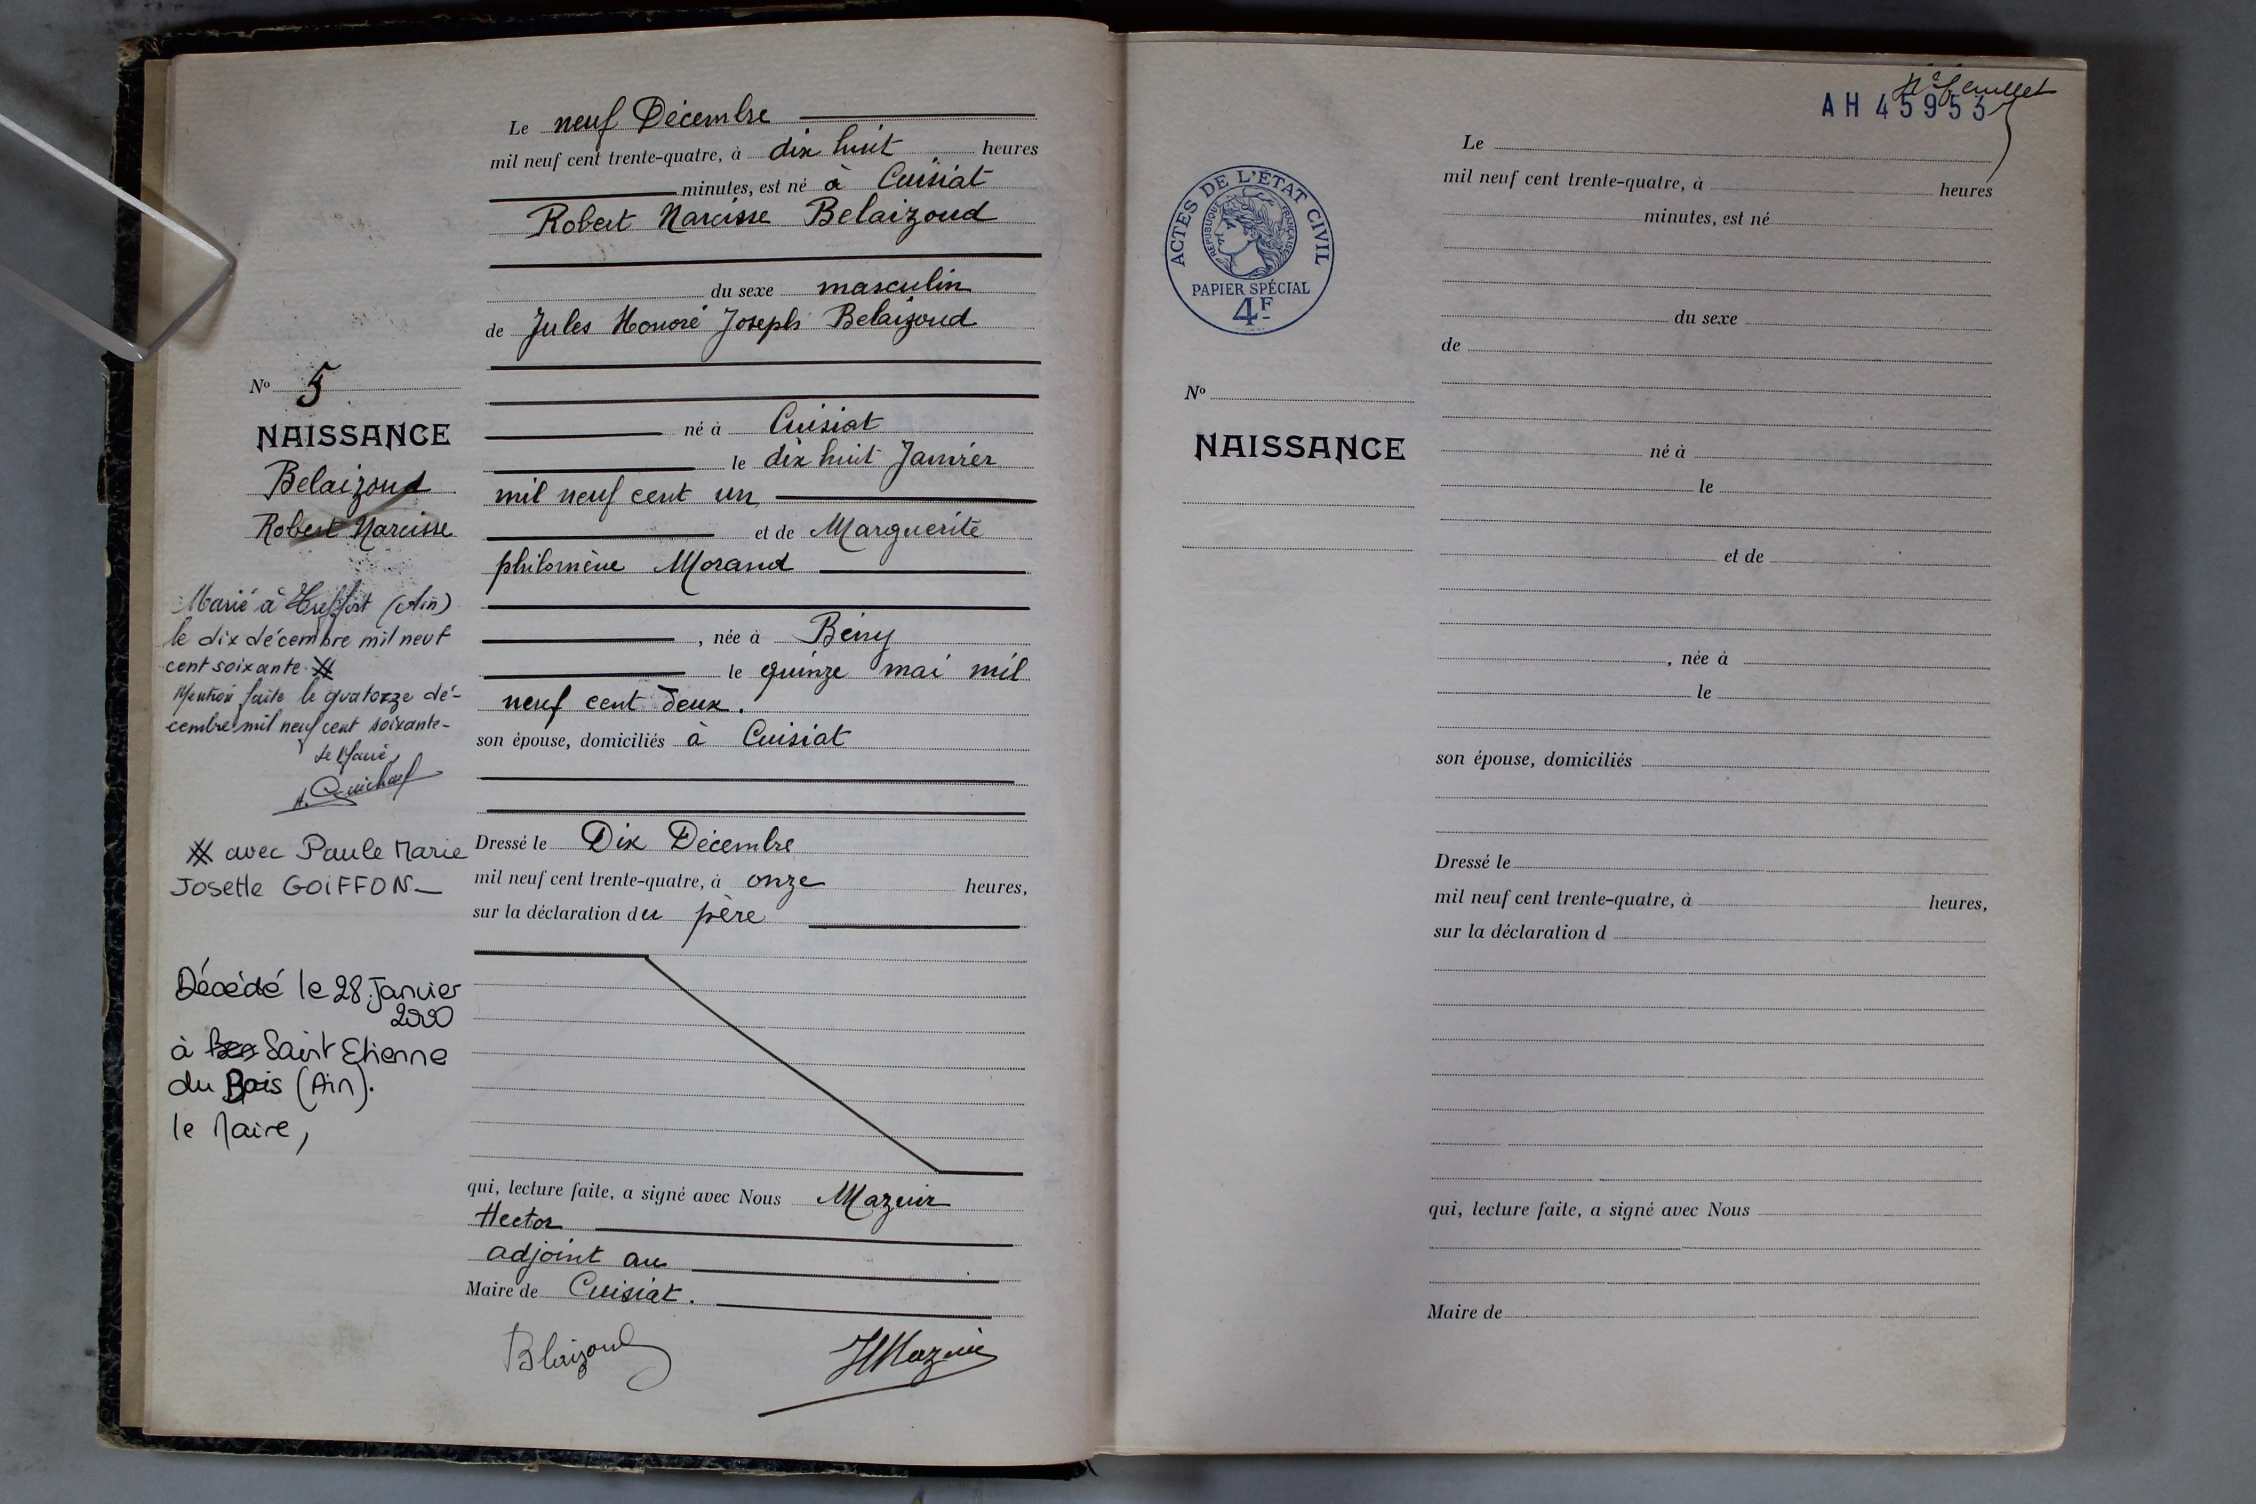 Le neuf Décembre
mil neuf cent trente-quatre, à dix huit heures
minutes, est né à Cuisiat
Robert Narcisse Belaizoud
du sexe masculin
de Jules Honoré Joseph Belaizoud
né à Cuisiat
le dix huit Janvier
mil neuf cent un
et de Marguerite
philomène Morand
, née à Bény
le quinze mai mil
neuf cent deux.
son épouse, domiciliés à Cuisiat
Dressé le Dix Décembre
mil neuf cent trente-quatre, à onze heures,
sur la déclaration du père
qui, lecture faite, a signé avec Nous Mazuir
Hector
adjoint au
Maire de Cuisiat.
Blaizoud
HMazuir
No 5
NAISSANCE
Belaizoud
Robert Narcisse
Marié à Treffort (Ain)
le dix décembre mil neuf
cent soixante
Mention faite le quatorze dé-
cembre mil neuf cent soixante-
Le Maire
avec Paule Marie
Josette GOIFFON
Décédé le 28 Janvier
2000
à Saint Etienne
du Bois (Ain).
le Maire,
feuillet
AH 45953
ACTES DE L'ÉTAT CIVIL
RÉPUBLIQUE FRANÇAISE
PAPIER SPÉCIAL
4F
No
NAISSANCE
Le
mil neuf cent trente-quatre, à heures
minutes, est né
du sexe
de
né à
le
et de
, née à
le
son épouse, domiciliés
Dressé le
mil neuf cent trente-quatre, à heures,
sur la déclaration d
qui, lecture faite, a signé avec Nous
Maire de